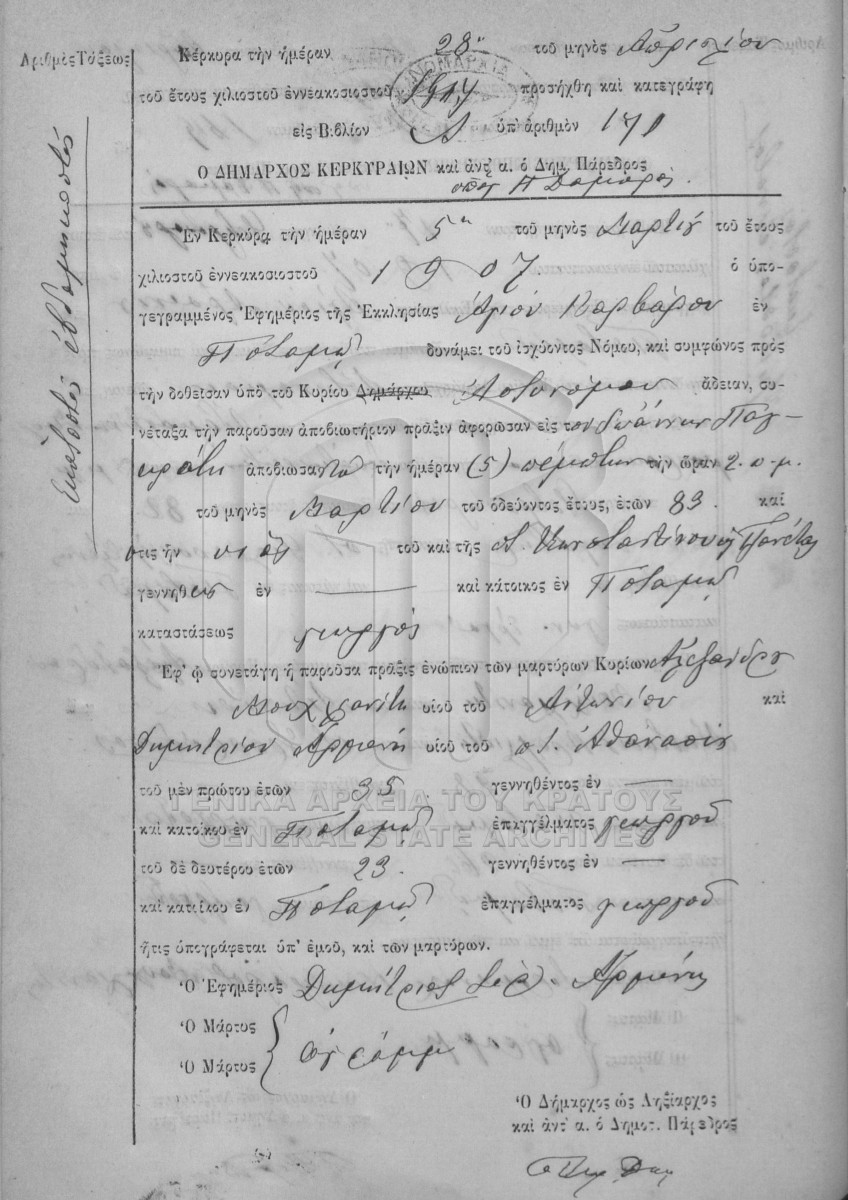 Ἀριθμὸς Τάξεως
Κέρκυρα τὴν ἡμέραν 28η τοῦ μηνὸς Ἀπριλίου
τοῦ ἔτους χιλιοστοῦ ἐννεακοσιοστοῦ προσήχθη καὶ κατεγράφη
εἰς Βιβλίον Α ὑπ' ἀριθμὸν 170
Ο ΔΗΜΑΡΧΟΣ ΚΕΡΚΥΡΑΙΩΝ καὶ ἀντ' α. ὁ Δημ. Πάρεδρος
Ἑκατοστὸς ἑβδομηκοστός
Ἐν Κερκύρᾳ τὴν ἡμέραν 5η τοῦ μηνὸς Μαρτίου τοῦ ἔτους
χιλιοστοῦ ἐννεακοσιοστοῦ 1907. ὁ ὑπο-
γεγραμμένος Ἐφημέριος τῆς Ἐκκλησίας Ἁγίου Βαρβάρου ἐν
Ποταμῷ δυνάμει τοῦ ἰσχύοντος Νόμου, καὶ συμφώνως πρὸς
τὴν δοθεῖσαν ὑπὸ τοῦ Κυρίου Δημάρχου Ἀστυνόμου ἄδειαν, συ-
νέταξα τὴν παροῦσαν ἀποβιωτήριον πρᾶξιν ἀφορῶσαν εἰς τον Ἰωάννην Παγ-
κράτη ἀποβιώσαντα τὴν ἡμέραν (5) πέμπτην τὴν ὥραν 2. π.μ.
τοῦ μηνὸς Μαρτίου τοῦ ὁδεύοντος ἔτους, ἐτῶν 83. καὶ
ὅστις ἦν υἱὸς τοῦ καὶ τῆς π. Κωνσταντίνου
γεννηθεις ἐν — καὶ κάτοικος ἐν Ποταμῷ
καταστάσεως γεωργὸς
Ἐφ' ᾧ συνετάγη ἡ παροῦσα πρᾶξις ἐνώπιον τῶν μαρτύρων Κυρίων Ἀλεξάνδρου
υἱοῦ τοῦ Ἀντωνίου καὶ
Δημητρίου Ἀρμενη υἱοῦ τοῦ π. Ἀθανασίου
τοῦ μὲν πρώτου ἐτῶν 35. γεννηθέντος ἐν —
ΓΕΝΙΚΑ ΑΡΧΕΙΑ ΤΟΥ ΚΡΑΤΟΥΣ
GENERAL STATE ARCHIVES
καὶ κατοίκου ἐν Ποταμῷ ἐπαγγέλματος γεωργοῦ
τοῦ δὲ δευτέρου ἐτῶν 23. γεννηθέντος ἐν —
καὶ κατοίκου ἐν Ποταμῷ ἐπαγγέλματος γεωργοῦ
ἥτις ὑπογράφεται ὑπ' ἐμοῦ, καὶ τῶν μαρτύρων.
Ὁ Ἐφημέριος Δημήτριος Ἱερ. Ἀρμένης
Ὁ Μάρτυς
Ὁ Μάρτυς ἀγράμμ
Ὁ Δήμαρχος ὡς Ληξίαρχος
καὶ ἀντ' α. ὁ Δημοτ. Πάρεδρος